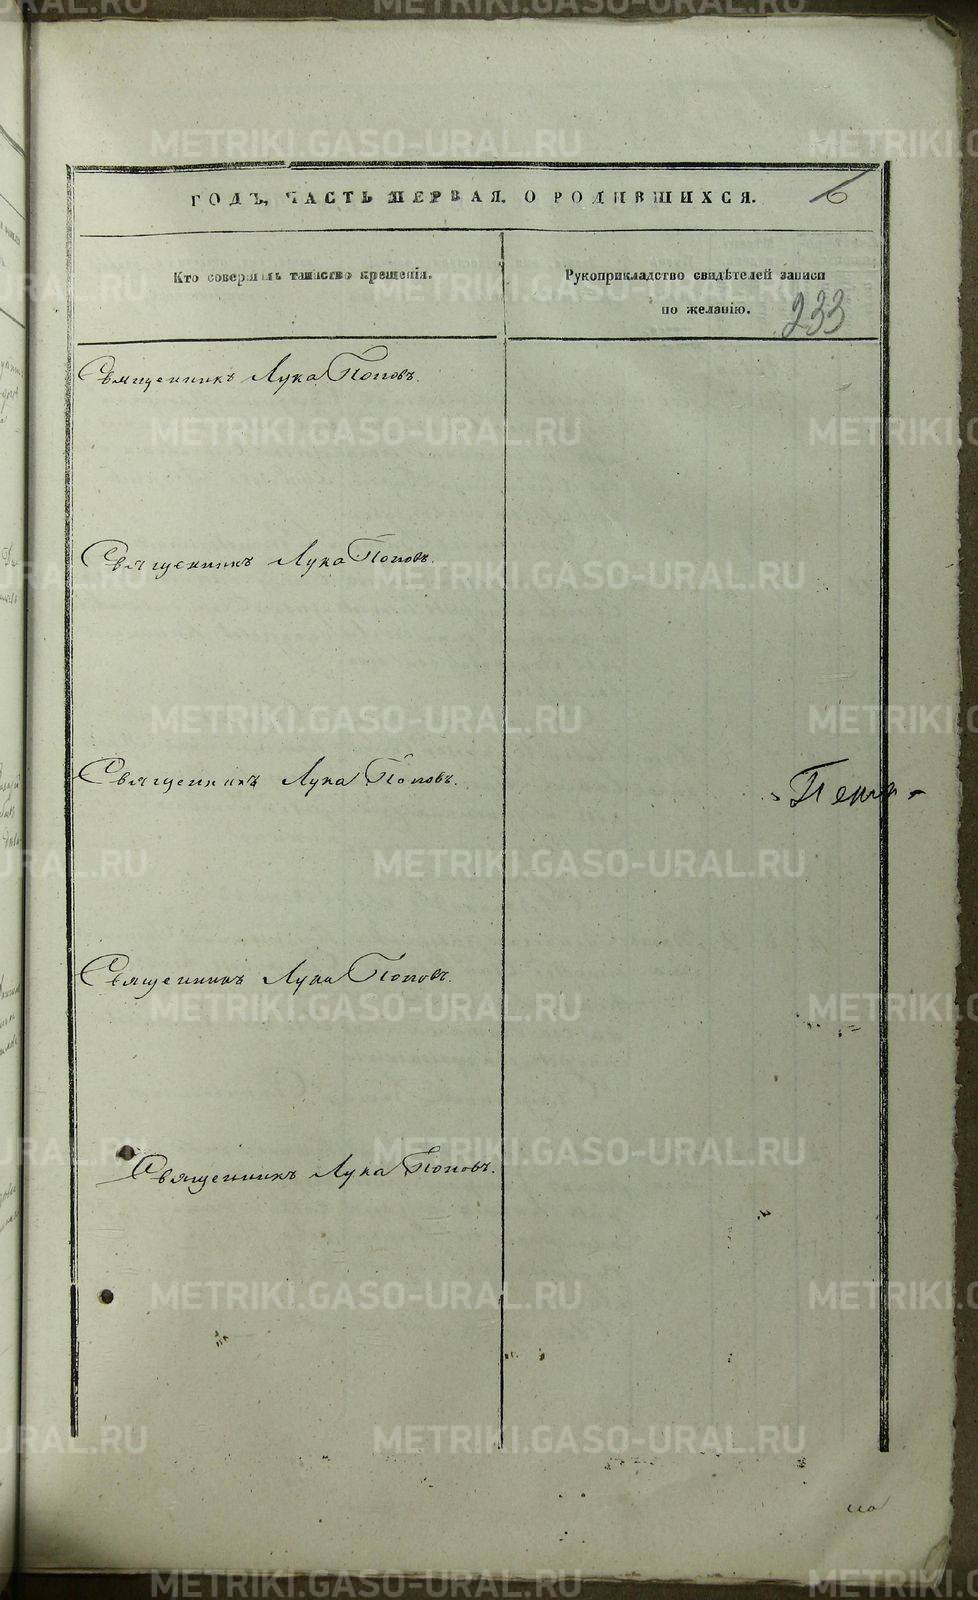 ГОДЪ, ЧАСТЬ ПЕРВАЯ, О РОДИВШИХСЯ. 6
Кто совершалъ таинство крещенія.
Рукоприкладство свидѣтелей записи
по желанію.
233
Священникъ Лука Поповъ.
Священникъ Лука Поповъ.
Священникъ Лука Поповъ.
Священникъ Лука Поповъ.
Священникъ Лука Поповъ.
METRIKI.GASO-URAL.RU